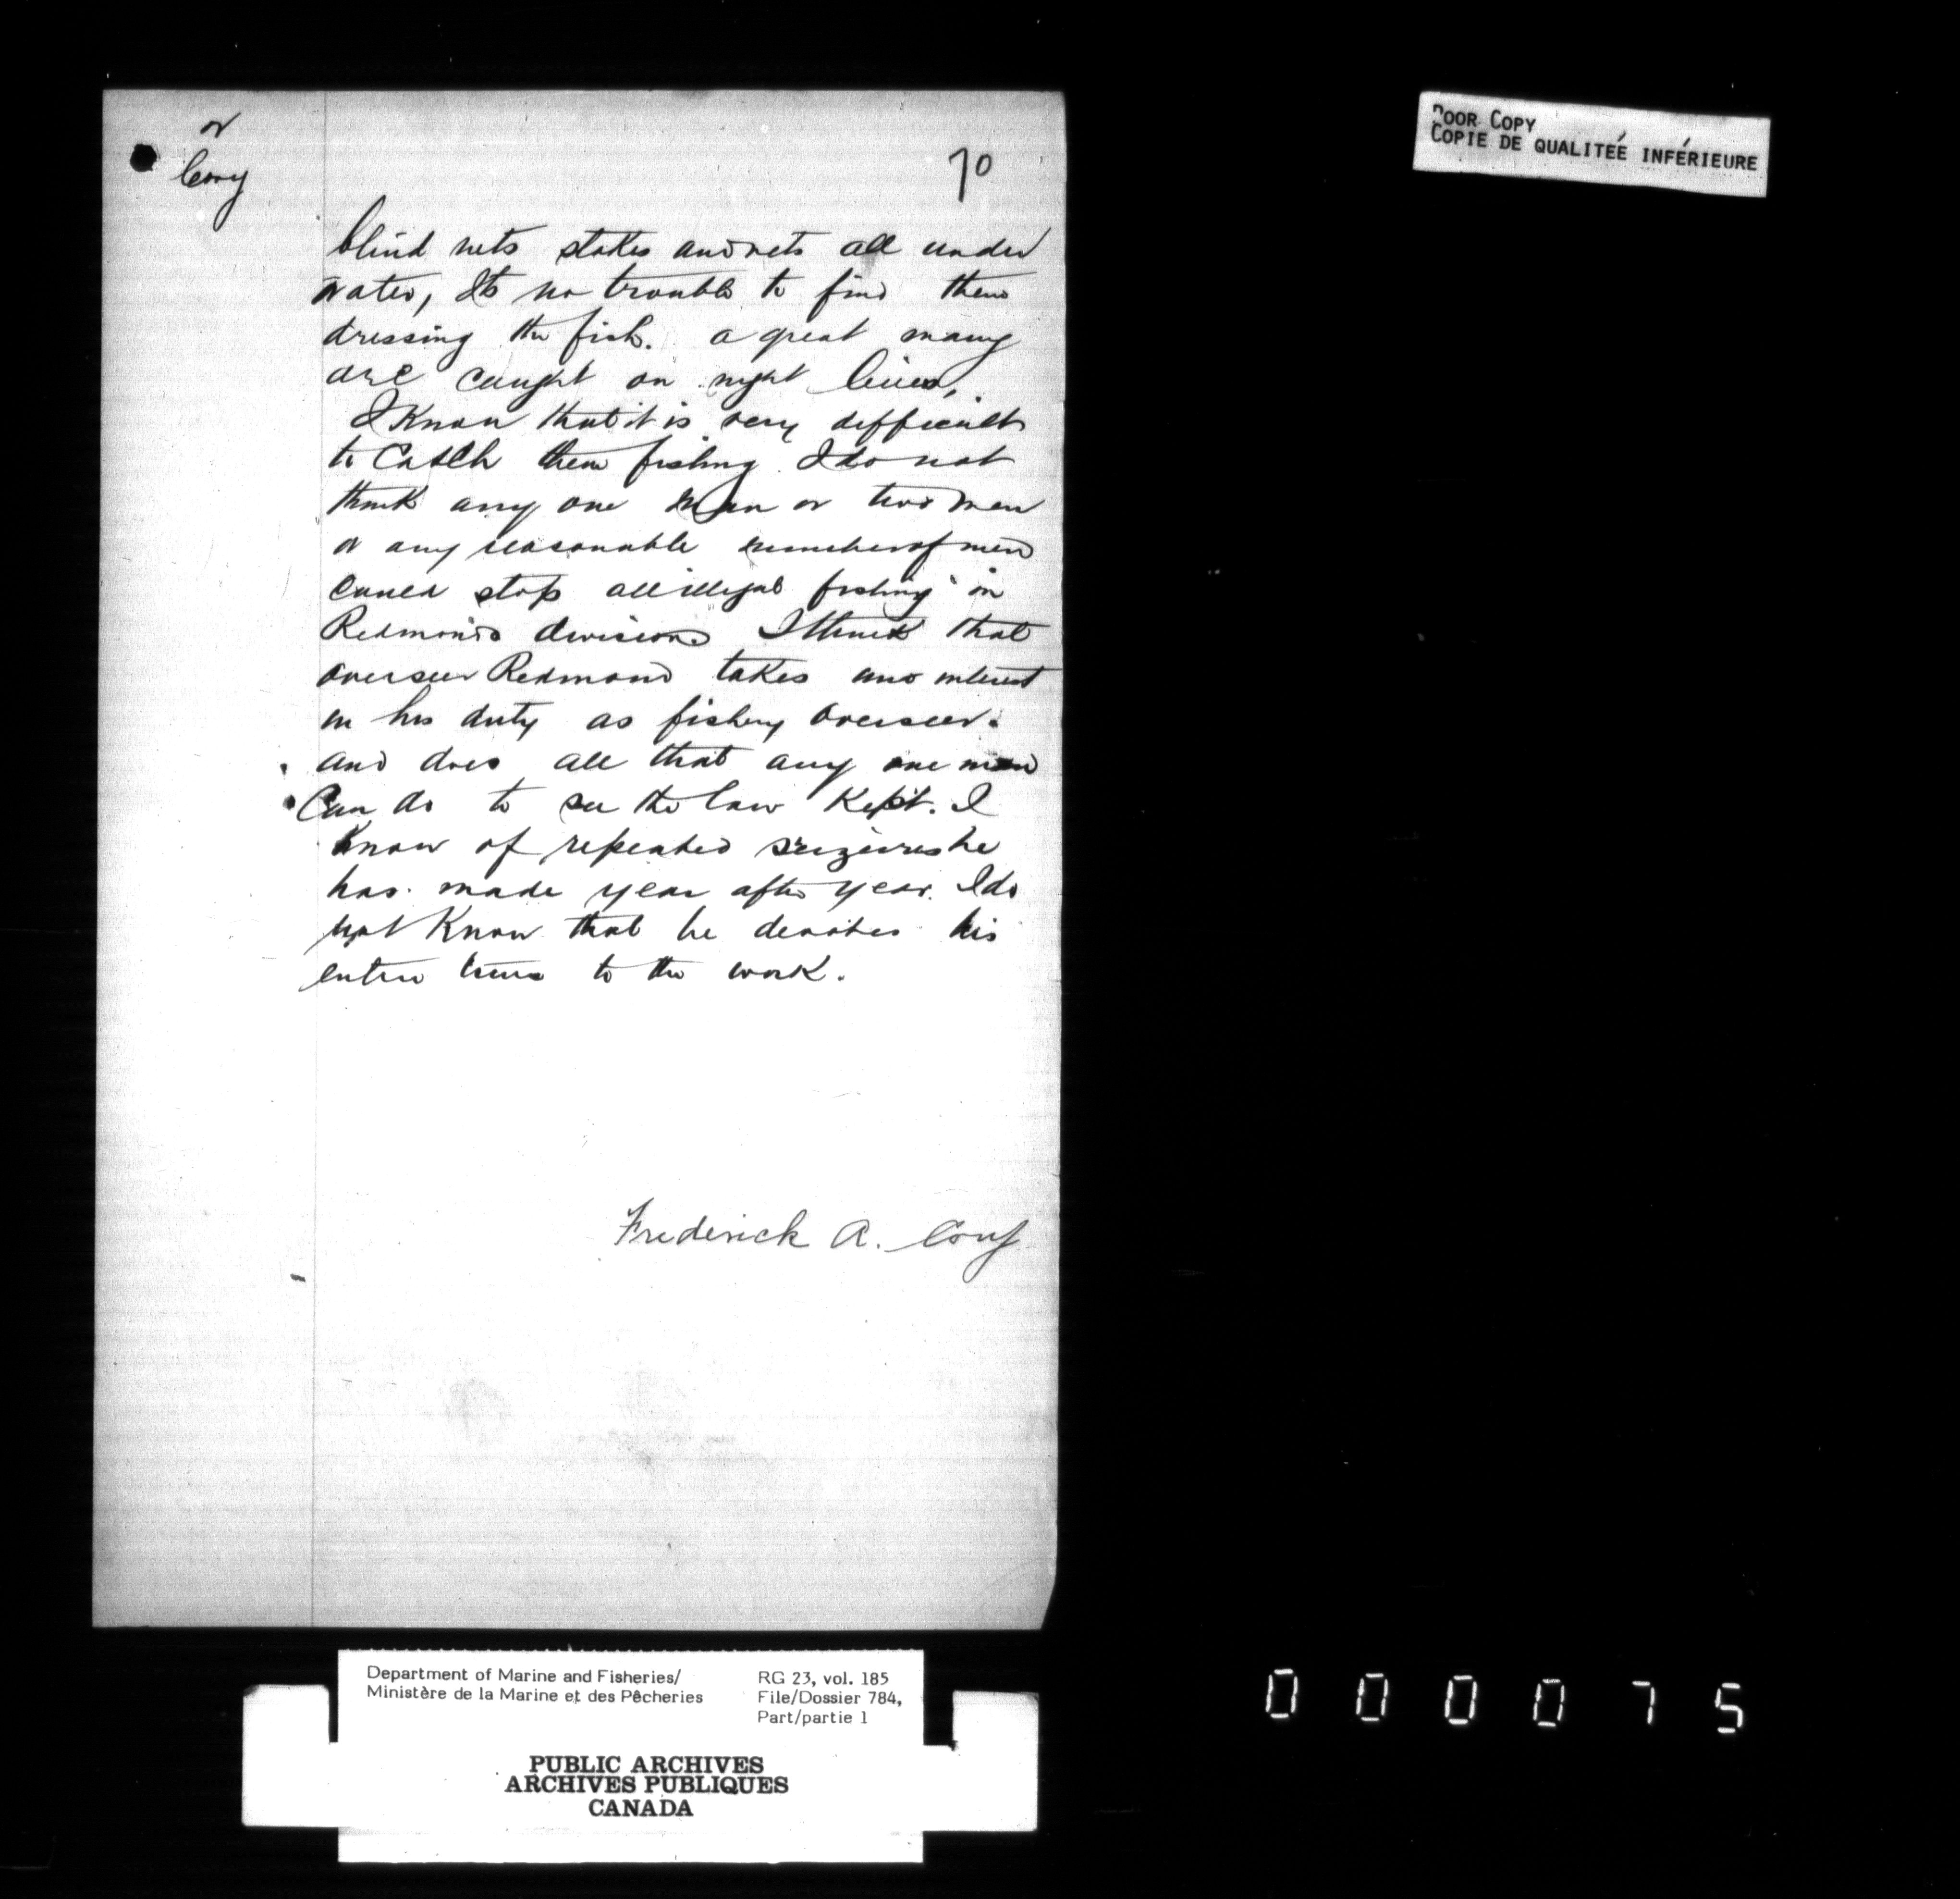 or
Cory
70
blind nets stakes and nets all under
water, Its no trouble to find them
dressing the fish. a great many
are caught on night lines,
I Know that it is very difficult
to Catch them fishing I do not
think any one man or two men
or any reasonable number of men
could stop all illegal fishing in
Redmonds division I think that
overseer Redmond takes interest
in his duty as fishery overseer.
and does all that any one man
Can do to see the law Kept. I
Know of repeated seizures he
has made year after year. I do
not Know that he devotes his
entire time to the work.
Frederick A. Cory
POOR COPY
COPIE DE QUALITEÉ INFÉRIEURE
Department of Marine and Fisheries/
Ministère de la Marine et des Pêcheries
RG 23, vol. 185
File/Dossier 784,
Part/partie 1
PUBLIC ARCHIVES
ARCHIVES PUBLIQUES
CANADA
000075